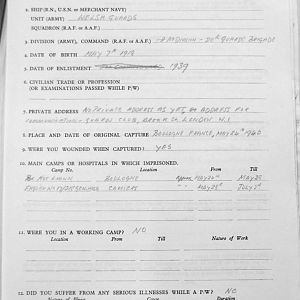 2. SHIP (R.N., U.S.N. or MERCHANT NAVY)
UNIT (ARMY) WELSH GUARDS
SQUADRON (R.A.F. or A.A.F.)
3. DIVISION (ARMY), COMMAND (R.A.F. or A.A.F.) 20th GUARDS BRIGADE
4. DATE OF BIRTH MAY 7th
5. DATE OF ENLISTMENT 1939
6. CIVILIAN TRADE OR PROFESSION
(OR EXAMINATIONS PASSED WHILE P/W)
7. PRIVATE ADDRESS NO PRIVATE ADDRESS AS YET, ADDRESS FOR
GUARDS CLUB, LONDON W.1
8. PLACE AND DATE OF ORIGINAL CAPTURE BOULOGNE FRANCE, MAY 1940
9. WERE YOU WOUNDED WHEN CAPTURED? YES
10. MAIN CAMPS OR HOSPITALS IN WHICH IMPRISONED.
Camp No. Location From Till
BOULOGNE MAY MAY
CAMIERS " " MAY JULY
11. WERE YOU IN A WORKING CAMP? NO
Location From Till Nature of Work
12. DID YOU SUFFER FROM ANY SERIOUS ILLNESSES WHILE A P/W? NO
Nature of Illness Cause Duration